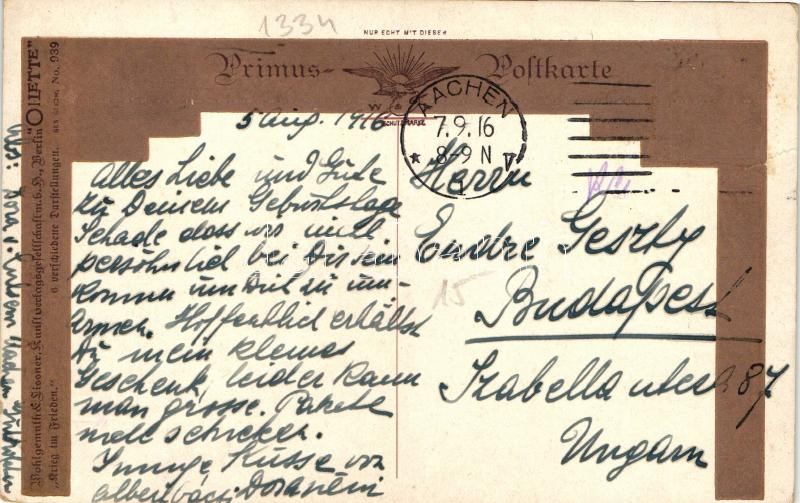 1334
NUR ECHT MIT DIESER
Primus- Postkarte
W & L
SCHUTZMARKE
AACHEN
7.9.16
8-9 N
1
5 Aug. 1916
Alles Liebe und Gute
zu Deinem Geburtstage
Schade dass wir nicht
persöhnlich bei Dir sein
können um Dich zu um-
armen. Hoffentlich erhältst
Du mein kleines
Geschenk, leider kann
man grosse Pakete
nicht schicken.
Innige Küsse von
Herrn
Endre Geszty
15
Budapest
Izabella utca 87
Ungarn
Wohlgemuth & Lissner, Kunstverlagsgesellschaft m.b.H., Berlin "OHETTE"
"Krieg im Frieden." 6 verschiedene Darstellungen. No. 939
Abs: